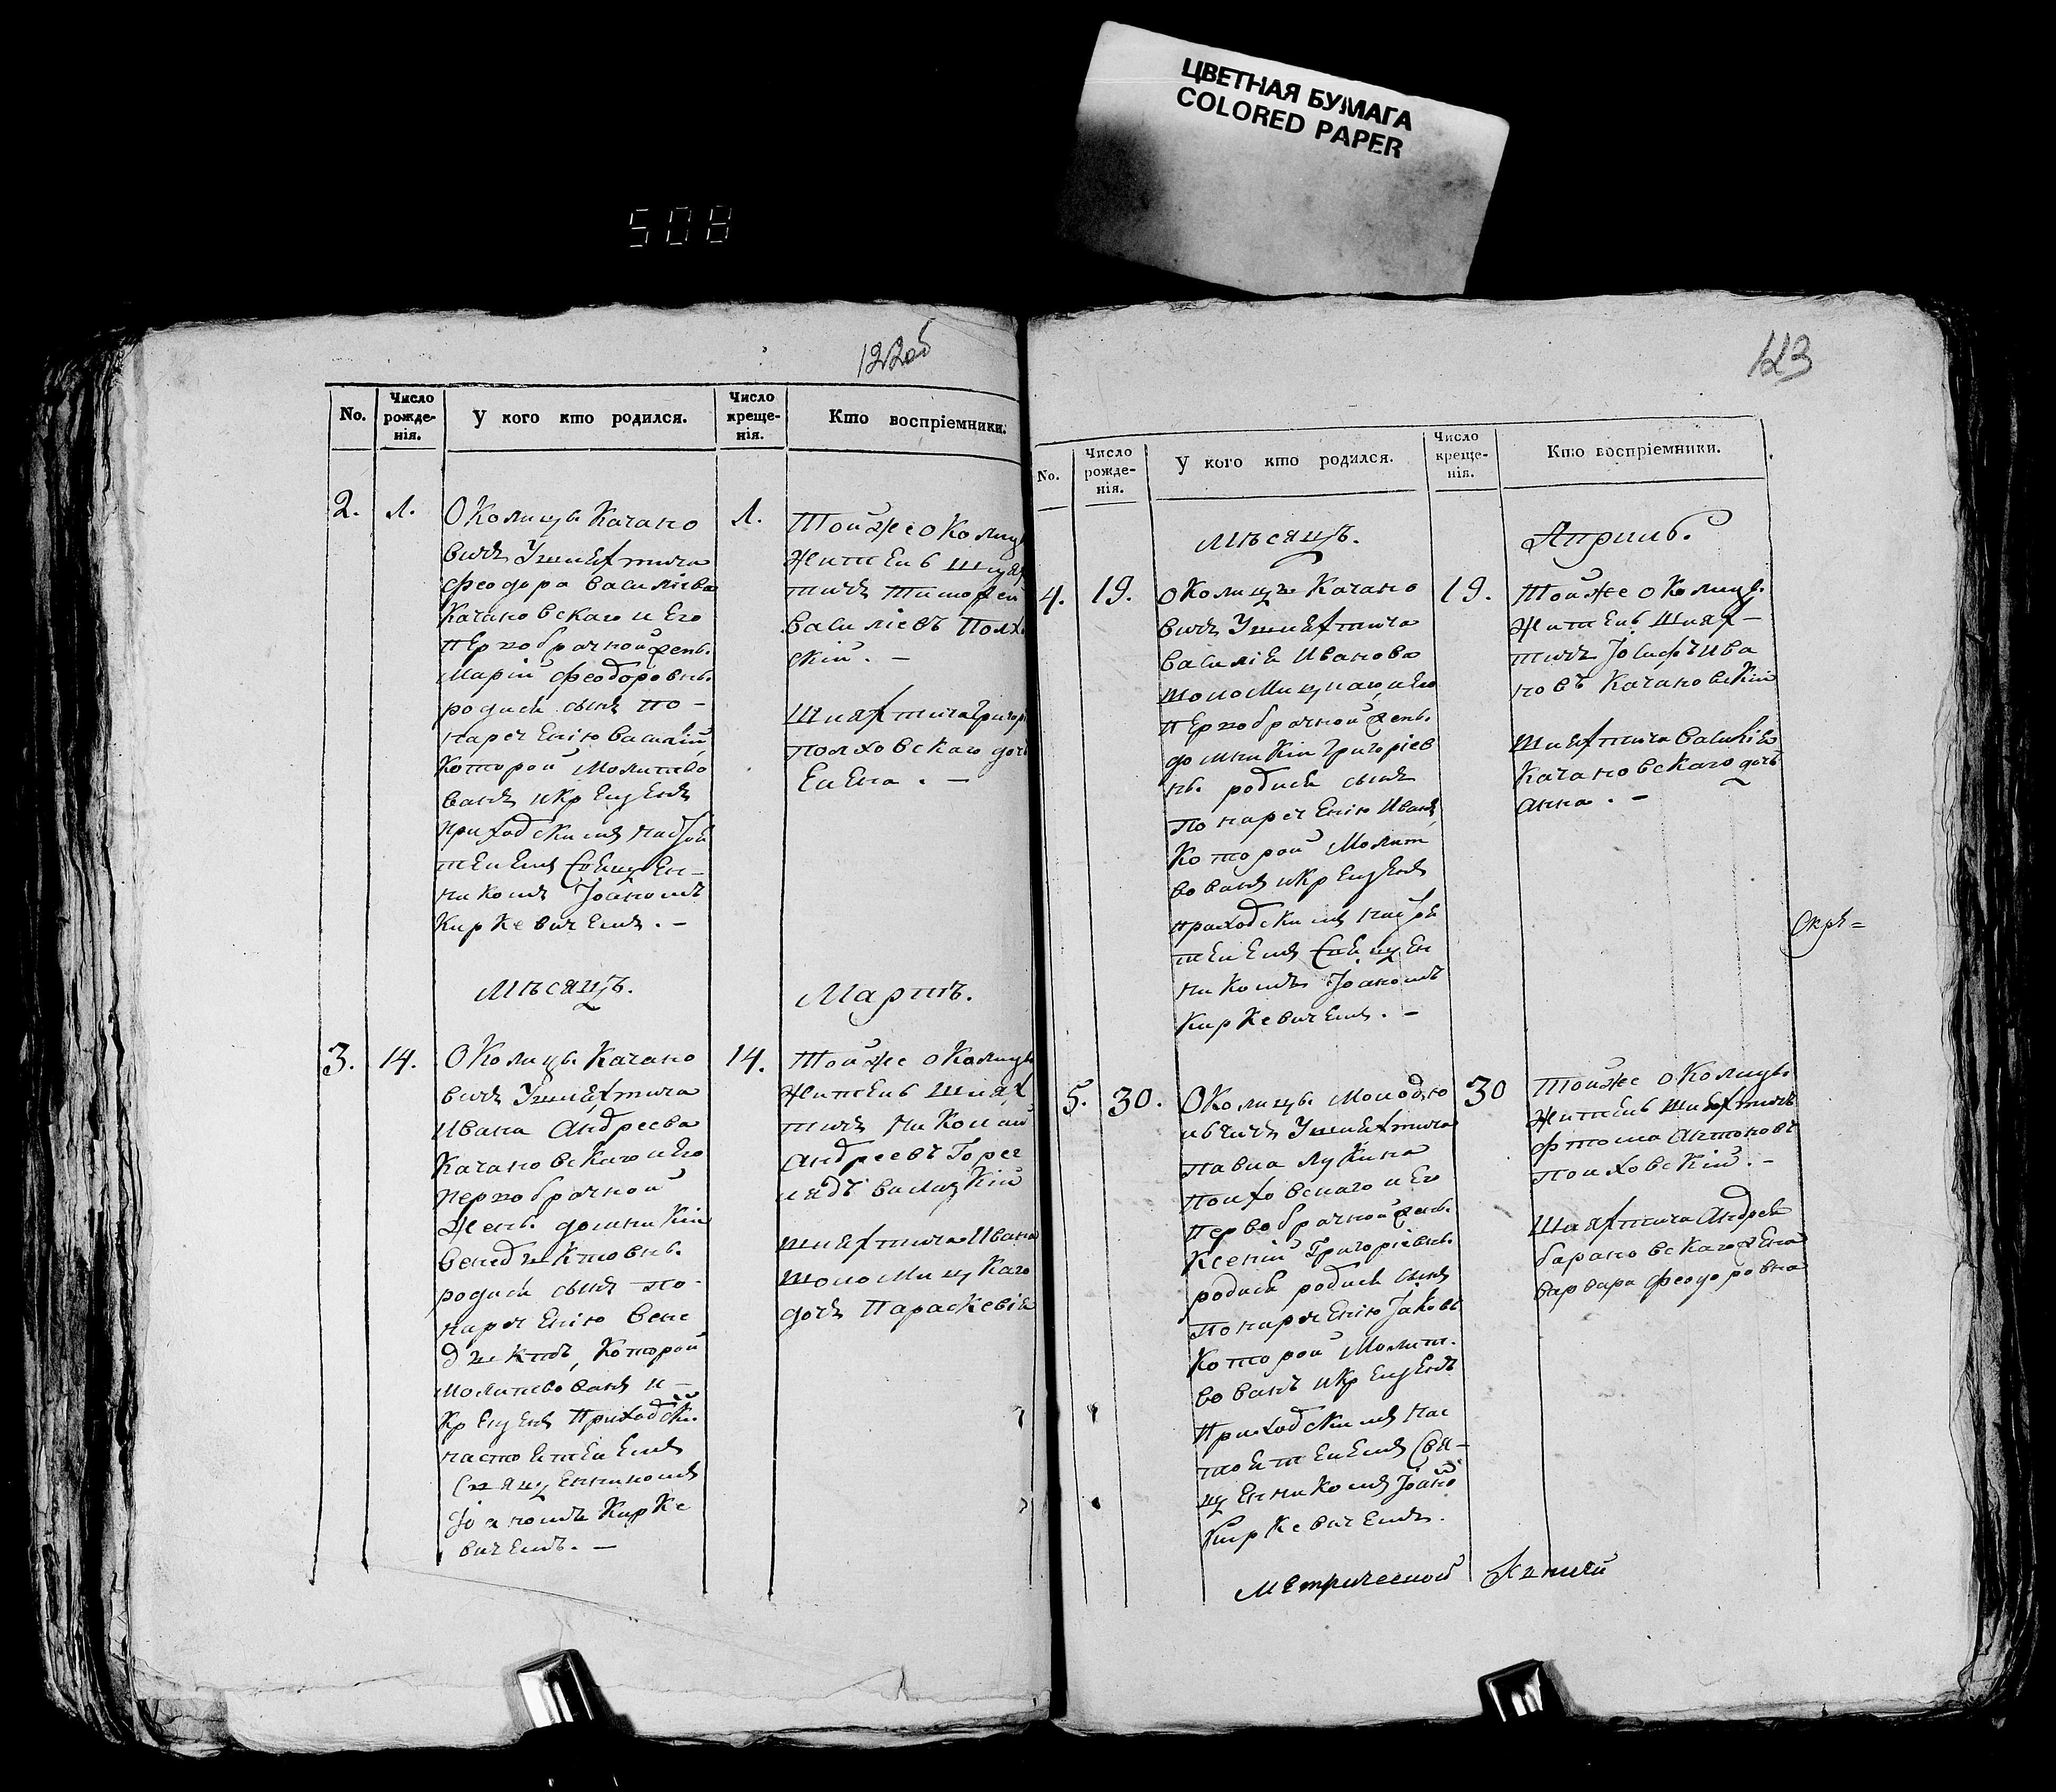 ЦВЕТНАЯ БУМАГА
COLORED PAPER
508
122об
No.
Число рожде-нія.
У кого кто родился.
Число креще-нія.
Кто воспріемники.
2.
Околицы Качано
вичъ У шляхтича
Феодора Василіева
Качановскаго и Его
первобрачной жены
Маріи Феодоровны
родися сынъ по-
нареченію Василій,
Которой Молитво
ванъ и крещенъ
приходскимъ Настоя
телемъ Священ-
никомъ Іоаномъ
Киркевичемъ. -
Тойже Околицы
Житель Шлях
тичъ Тимофей
Василіевъ
скій. -
Шляхтича Григор
Полховскаго дочь
Елена. -
Мѣсяцъ.
Мартъ.
3.
14.
Околицы Качано
вичъ У шляхтича
Ивана Андреева
Качановскаго и Его
первобрачной
жены Доминикіи
Бенедиктовны
родися сынъ по-
нареченію Бене
диктъ, Которой
Молитвованъ и-
Крещенъ Приходски
настоятелемъ
Священникомъ
Іоаномъ Кирке
вичемъ. -
14.
Тойже Околицы
Житель Шлях
тичъ Николай
Андреевъ
Шляхтича Ивана
дочь Параскевія
123
No.
Число рожде-нія.
У кого кто родился.
Число креще-нія.
Кто воспріемники.
Мѣсяцъ.
Априль.
4.
19.
Околицы Качано
вичъ У шляхтича
Василія Иванова
и Его
первобрачной жены
Доминикіи Григоріев
ны родися сынъ
по нареченію Иванъ,
Которой Молит
вованъ и крещенъ
приходскимъ Настоя
телемъ Священ
никомъ Іоаномъ
Киркевичемъ. -
19.
Тойже Околицы
Житель Шлях-
тичъ Іосифъ Ива
новъ Качановскій
Шляхтича Василія
Качановскаго дочь
Анна. -
Скрѣ=
5.
30.
Околицы Молодко
вичъ У шляхтича
Павла Лукина
Полховскаго и Его
первобрачной жены
Ксеніи Григоріевны
родися родися сынъ
По нареченію Іаковъ
Которой Молит.
вованъ и крещенъ
Приходскимъ Нас
тоятелемъ Свя-
щенникомъ Іоано
Киркевичемъ.
30
Тойже Околицы
Житель Шляхтичъ
Фтома Антоновъ
Полховскій. -
Шляхтича Андрея
Барановскаго жена
Варвара Феодоровна
Метрической Книги